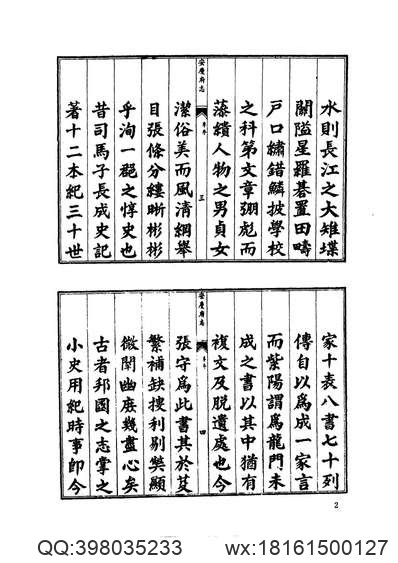 水則長江之大雉堞
關隘星羅碁置田疇
戶口繡錯鱗披學校
之科第文章彌彪而
藻繢人物之男貞女
安慶府志
序
三
潔俗美而風清綱舉
目張條分縷晰彬彬
乎洵一郡之惇史也
昔司馬子長成史記
著十二本紀三十世
家十表八書七十列
傳自以爲成一家言
而紫陽謂爲龍門未
成之書以其中猶有
複文及脫遺處也今
安慶府志
序
四
張守爲此書其於芟
繁補缺搜利剔弊顯
微闡幽庶幾盡心矣
古者邦國之志掌之
小史用紀時事卽今
2
QQ:398035233
wx:18161500127